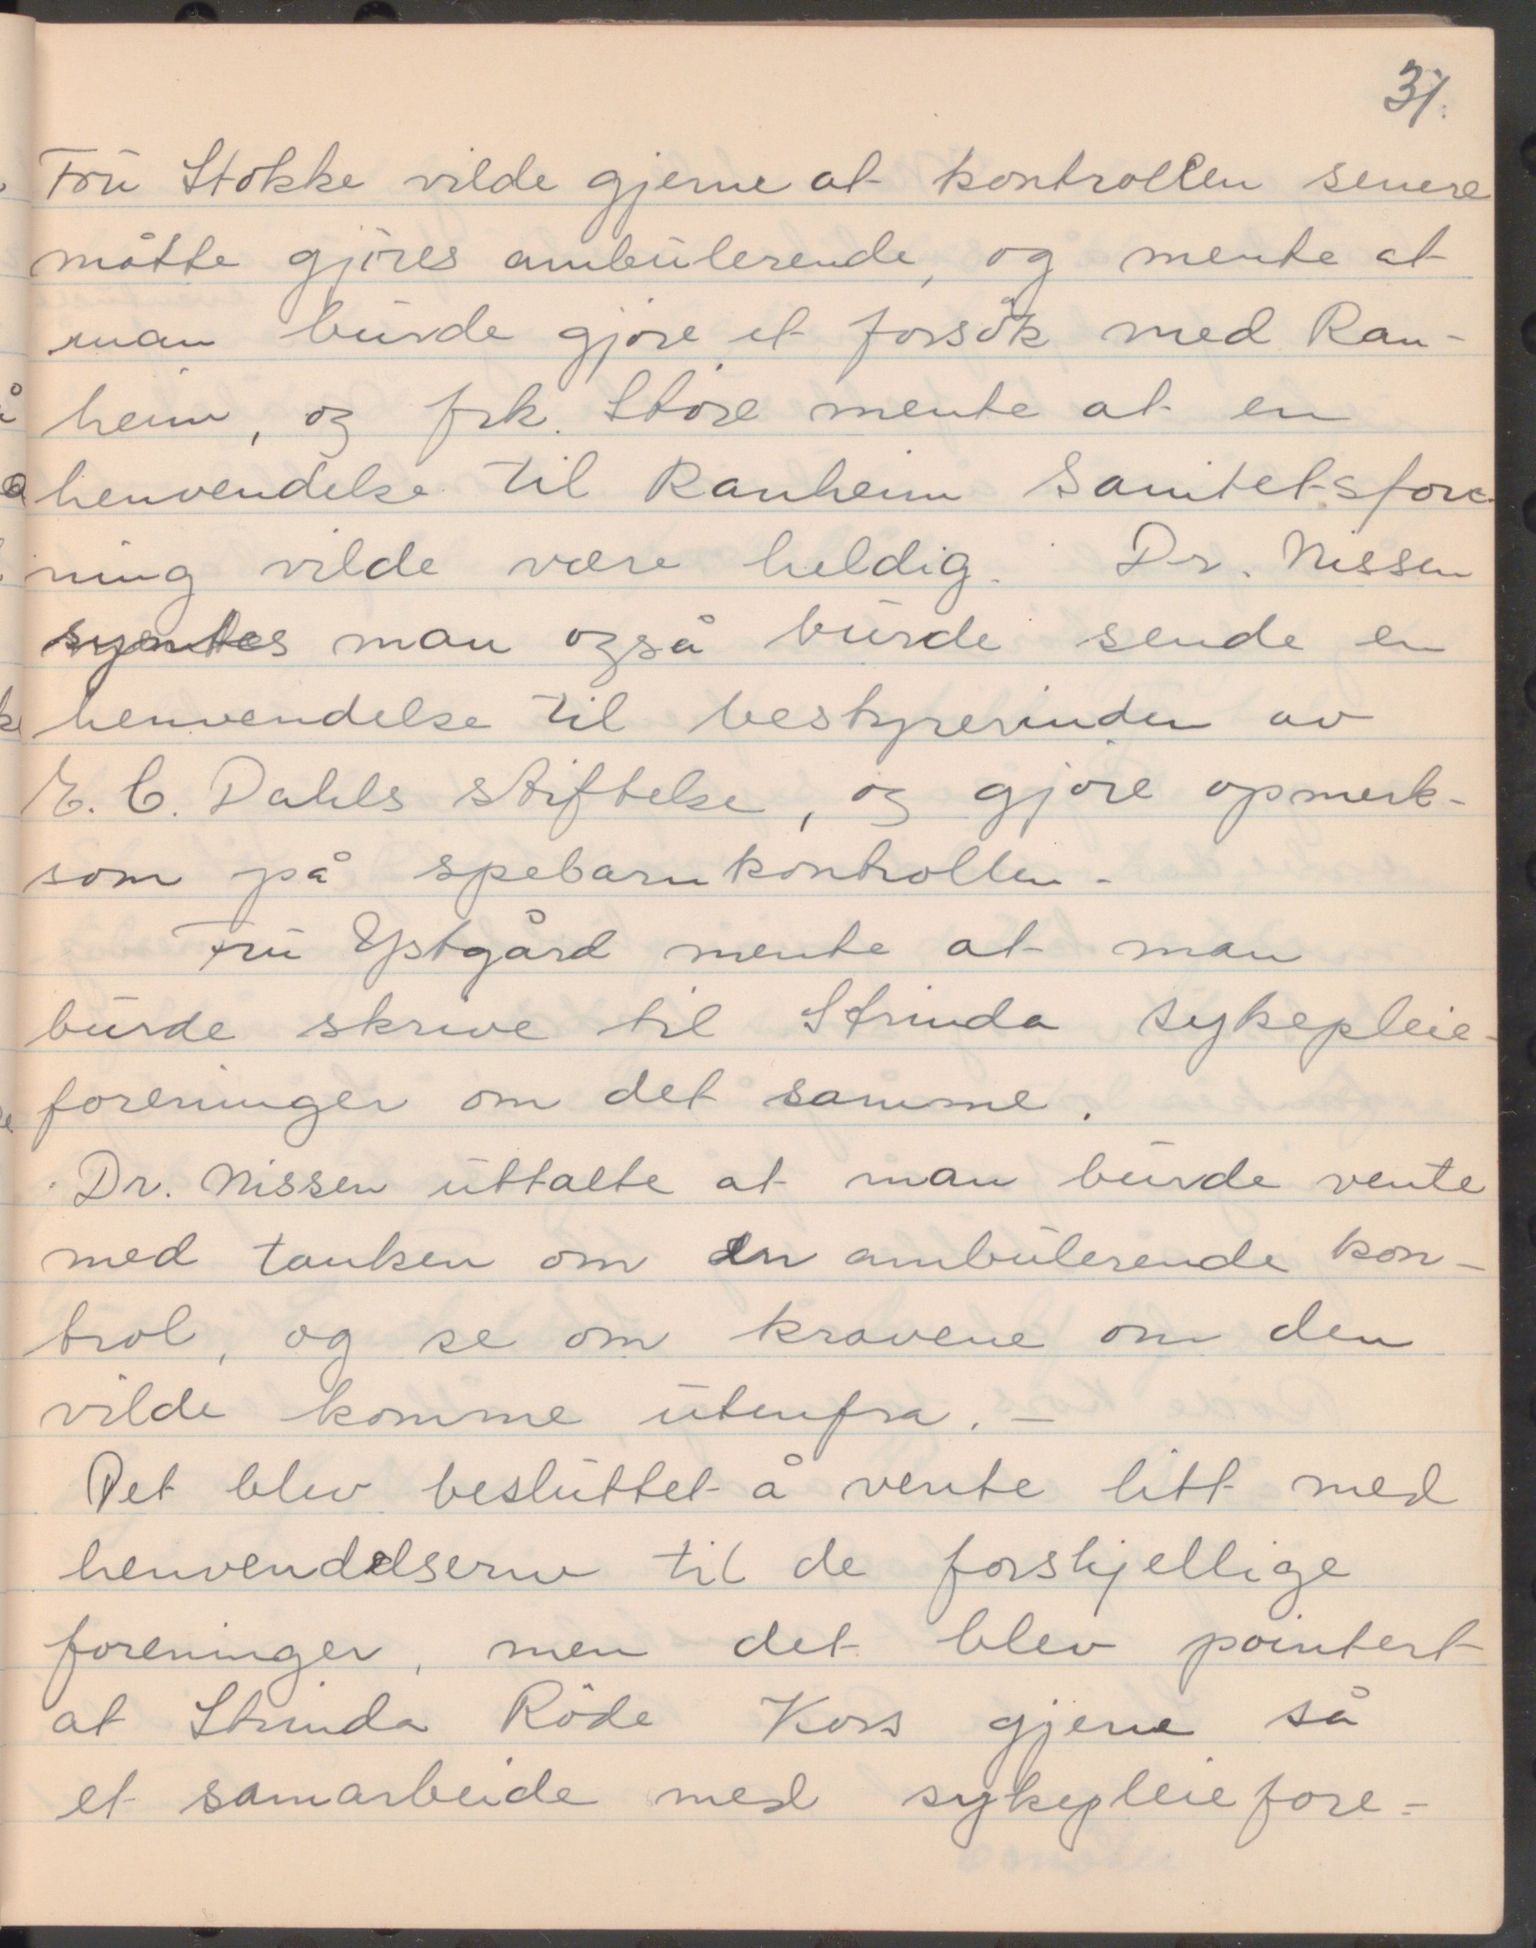 31.
Fru Stokke vilde gjerne at kontrollen senere
måtte gjöres ambulerende, og mente at
man burde gjöre et forsök med Ran-
heim, og frk. Störe mente at en
henvendelse til Ranheim Sanitetsfore-
ning vilde være heldig. Dr. Nissen
syntes man også burde sende en
henvendelse til bestyrerinden av
E. C. Dahls stiftelse, og gjöre opmerk-
som på spebarnkontrollen.
Fru Ystgård mente at man
burde skrive til Strinda sykepleie-
foreninger om det samme.
Dr. Nissen uttalte at man burde vente
med tanken om en ambulerende kon-
trol, og se om kravene om den
vilde komme utenfra. -
Det blev besluttet å vente litt med
henvendelserne til de forskjellige
foreninger, men det blev pointert
at Strinda Röde Kors gjerne så
et samarbeide med sykepleiefore-